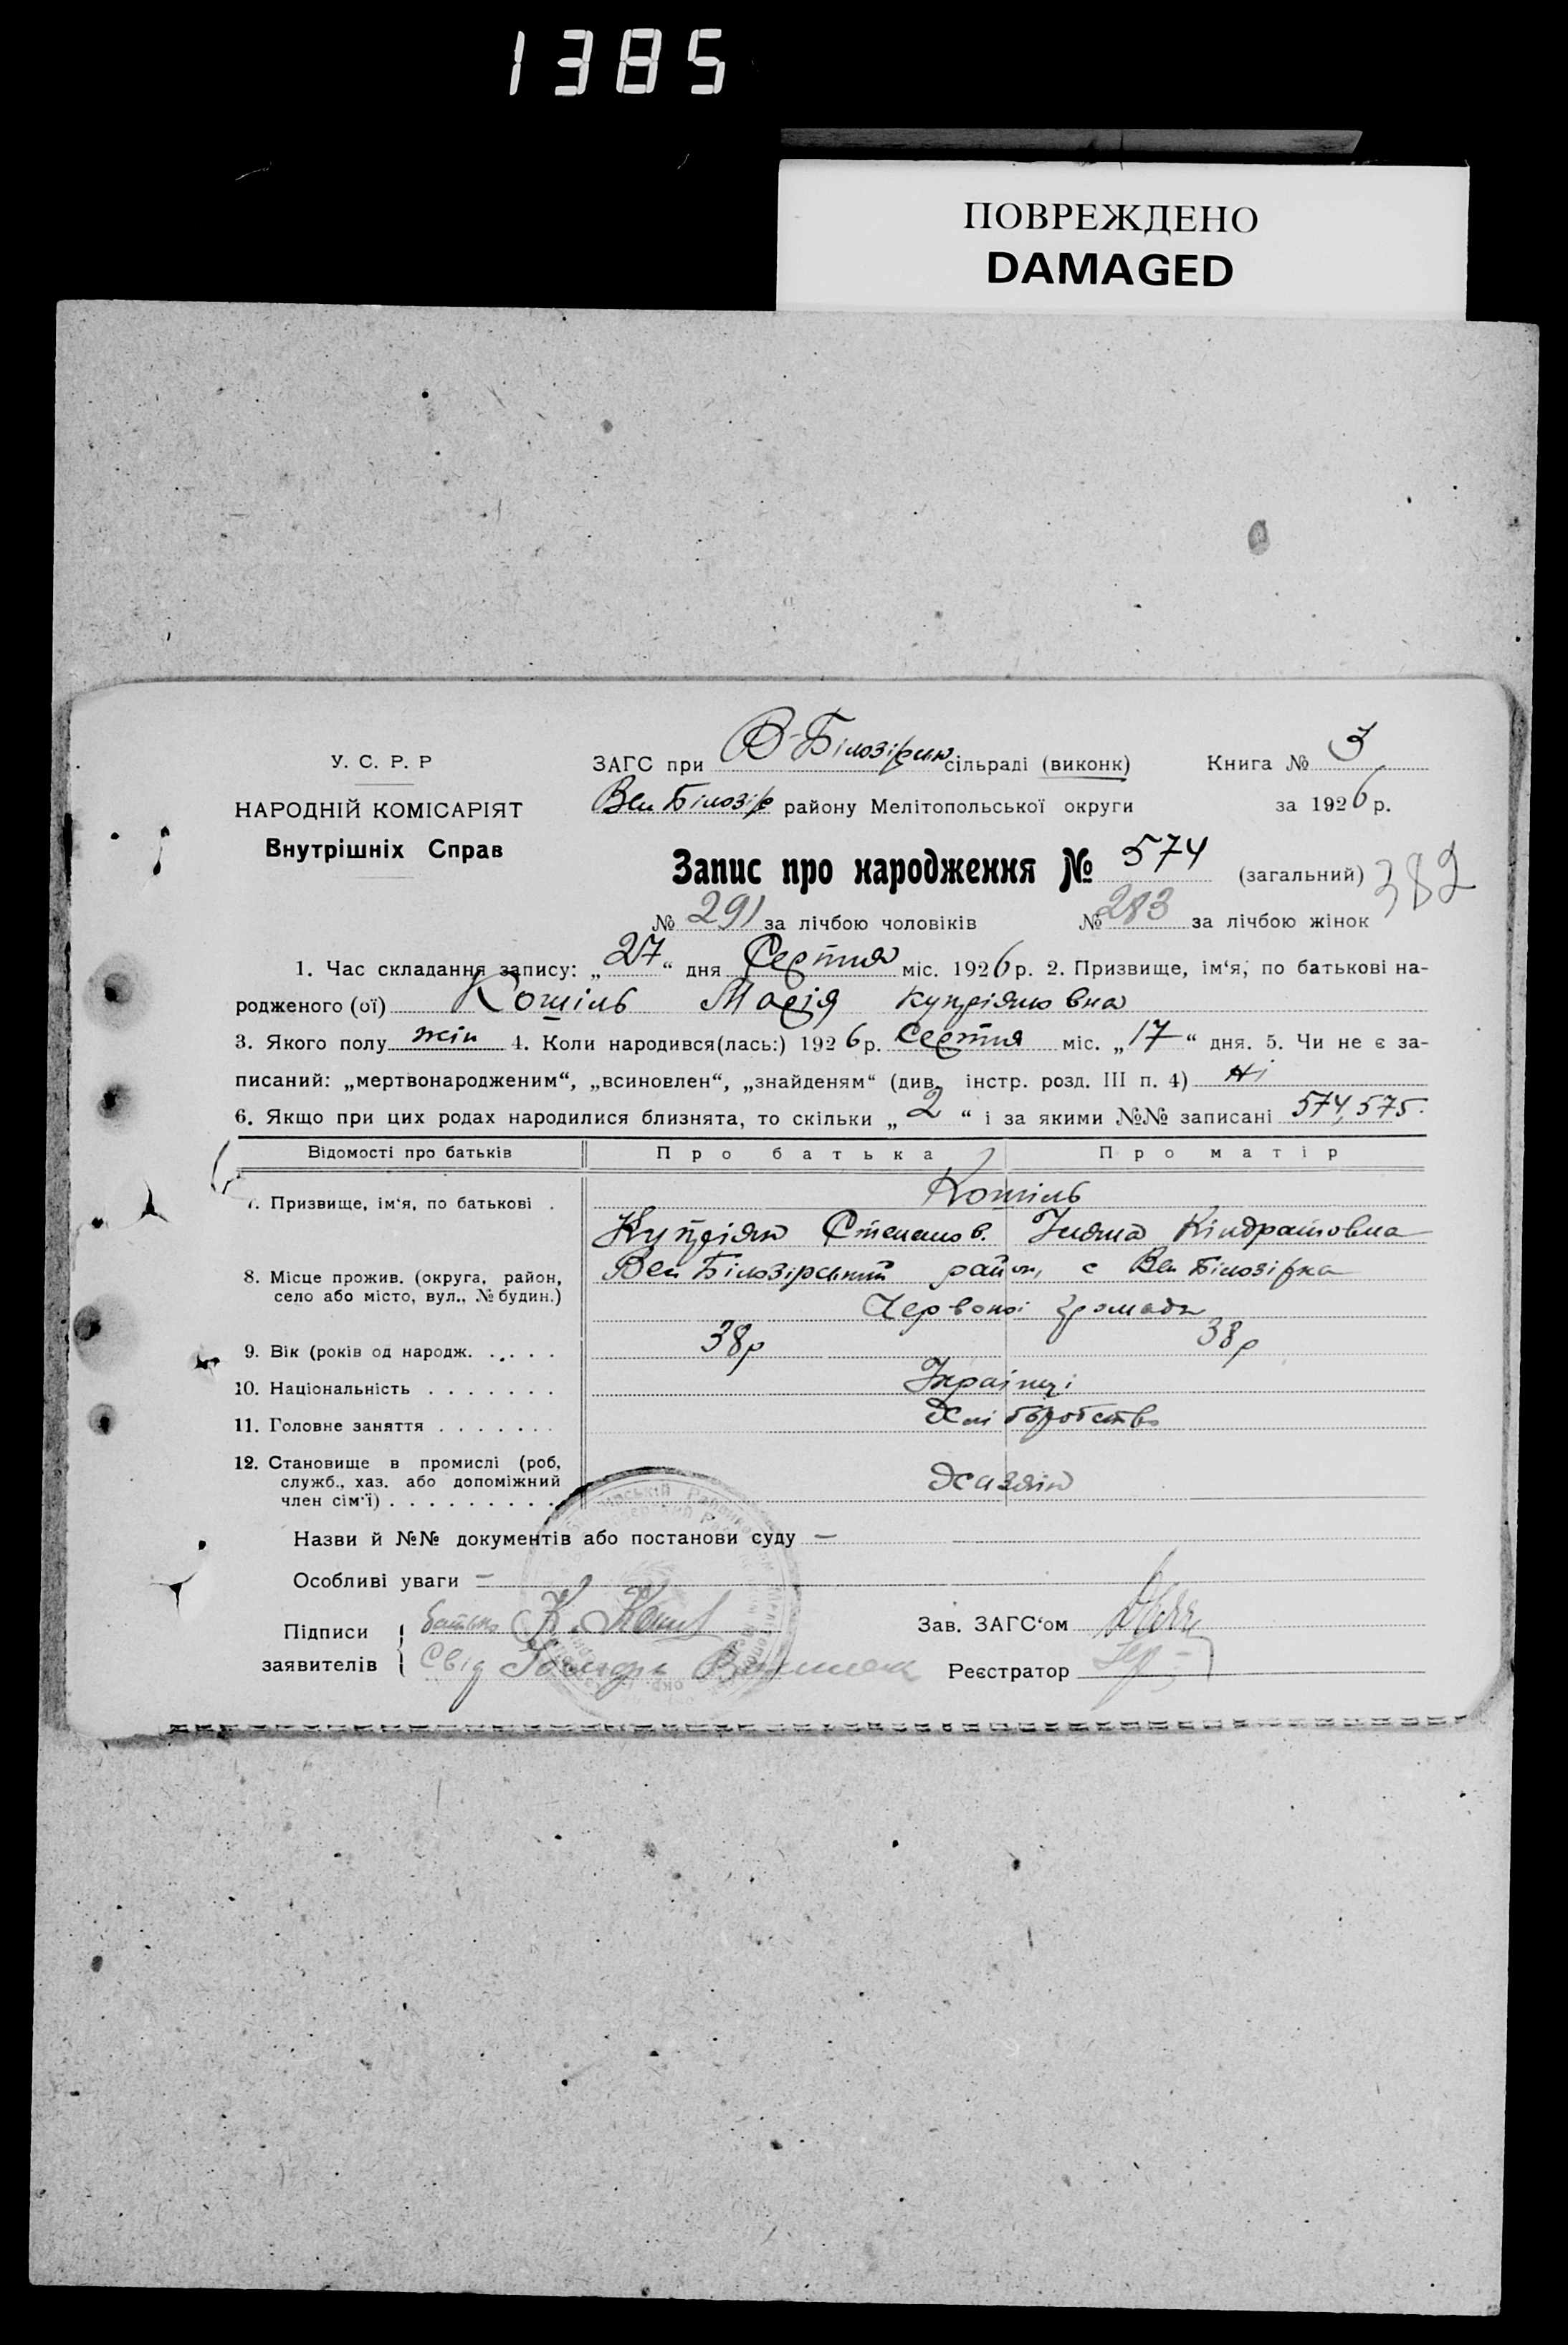 1385
ПОВРЕЖДЕНО
DAMAGED
У. С. Р. Р
НАРОДНІЙ КОМІСАРІЯТ
Внутрішніх Справ
ЗАГС при В-Білозірки сільраді (виконк)
Вел Білозір району Мелітопольської округи
Книга № 3
за 1926 р.
Запис про народження № 574 (загальний) 382
№ 291 за лічбою чоловіків № 283 за лічбою жінок
1. Час складання запису: „27“ дня Серпня міс. 1926 р. 2. Призвище, ім‘я, по батькові на-
родженого (ої) Котіль Марія Купріяновна
3. Якого полу жін 4. Коли народився(лась:) 1926 р. Серпня міс. „17“ дня. 5. Чи не є за-
писаний: „мертвонародженим“, „всиновлен“, „знайденям“ (див. інстр. розд. III п. 4) Ні
6. Якщо при цих родах народилися близнята, то скільки „2“ і за якими №№ записані 574, 575.
Відомості про батьків Про батька Про матір
7. Призвище, ім‘я, по батькові . Котіль
Купріян Степанов. Уляна Кіндратовна
8. Місце прожив. (округа, район, село або місто, вул., № будин.) Вел Білозірський район, с Вел Білозірка
Червоної громади
9. Вік (років од народж. . . . . . 38р 38р
10. Національність . . . . . . . Українці
11. Головне заняття . . . . . . . Хліборобство
12. Становище в промислі (роб, служб., хаз. або допоміжний член сім‘ї) . . . . . . . . . . Хазяїн
Назви й №№ документів або постанови суду —
Особливі уваги —
Підписи заявителів
батько К. Котіль
Свід
Зав. ЗАГС‘ом
Реєстратор